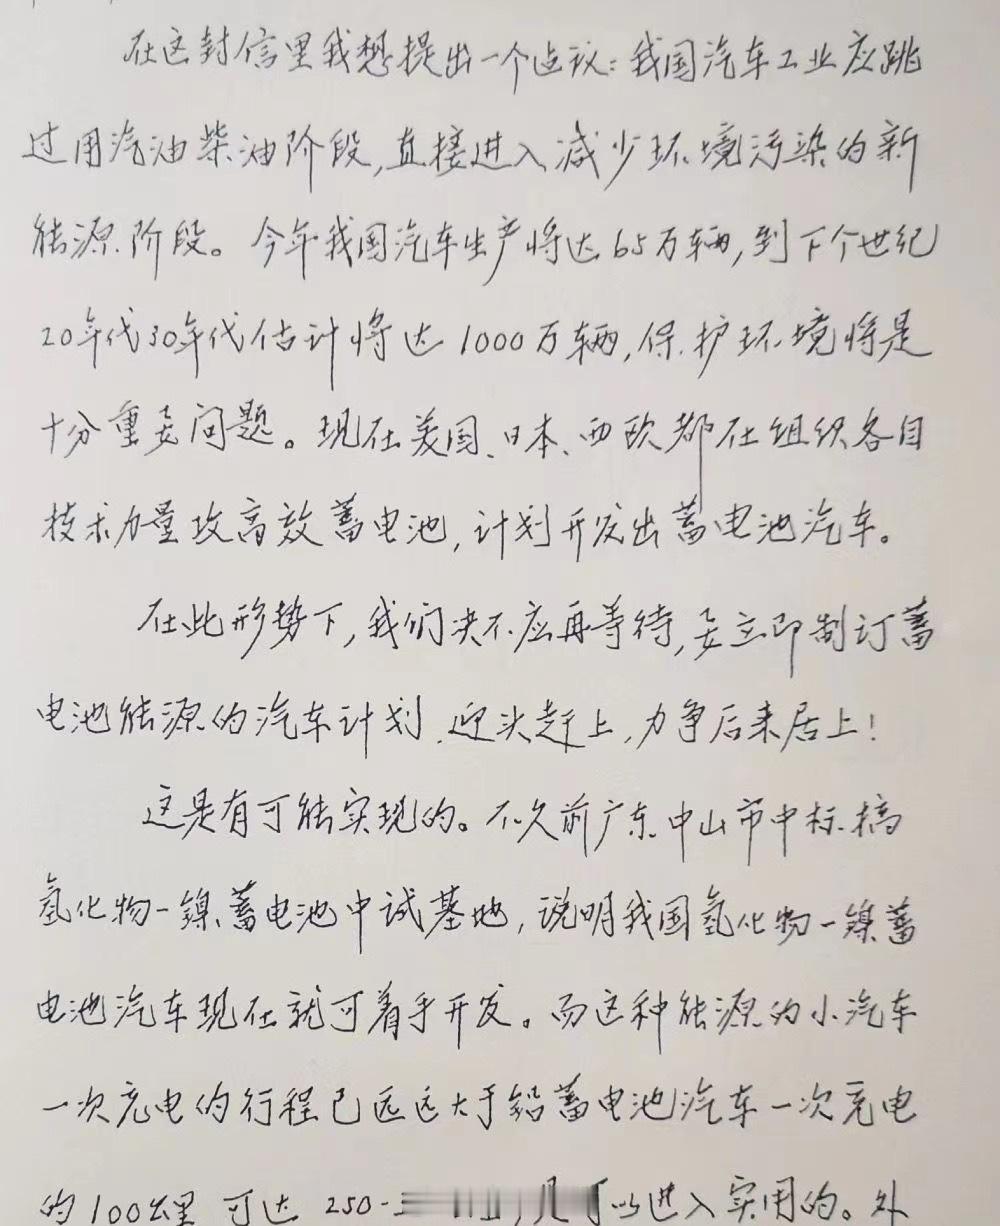 在这封信里我想提出一个建议：我国汽车工业应跳
过用汽油柴油阶段，直接进入减少环境污染的新
能源阶段。今年我国汽车生产将达65万辆，到下个世纪
20年代30年代估计将达1000万辆，保护环境将是
十分重要问题。现在美国、日本、西欧都在组织各自
技术力量攻高效蓄电池，计划开发出蓄电池汽车。
在此形势下，我们决不应再等待，要立即制订蓄
电池能源的汽车计划，迎头赶上，力争后来居上！
这是有可能实现的。不久前广东中山市中标搞
氢化物－镍蓄电池中试基地，说明我国氢化物－镍蓄
电池汽车现在就可着手开发。而这种能源的小汽车
一次充电的行程已远远大于铅蓄电池汽车一次充电
的100公里，可达250- 以进入实用的。外